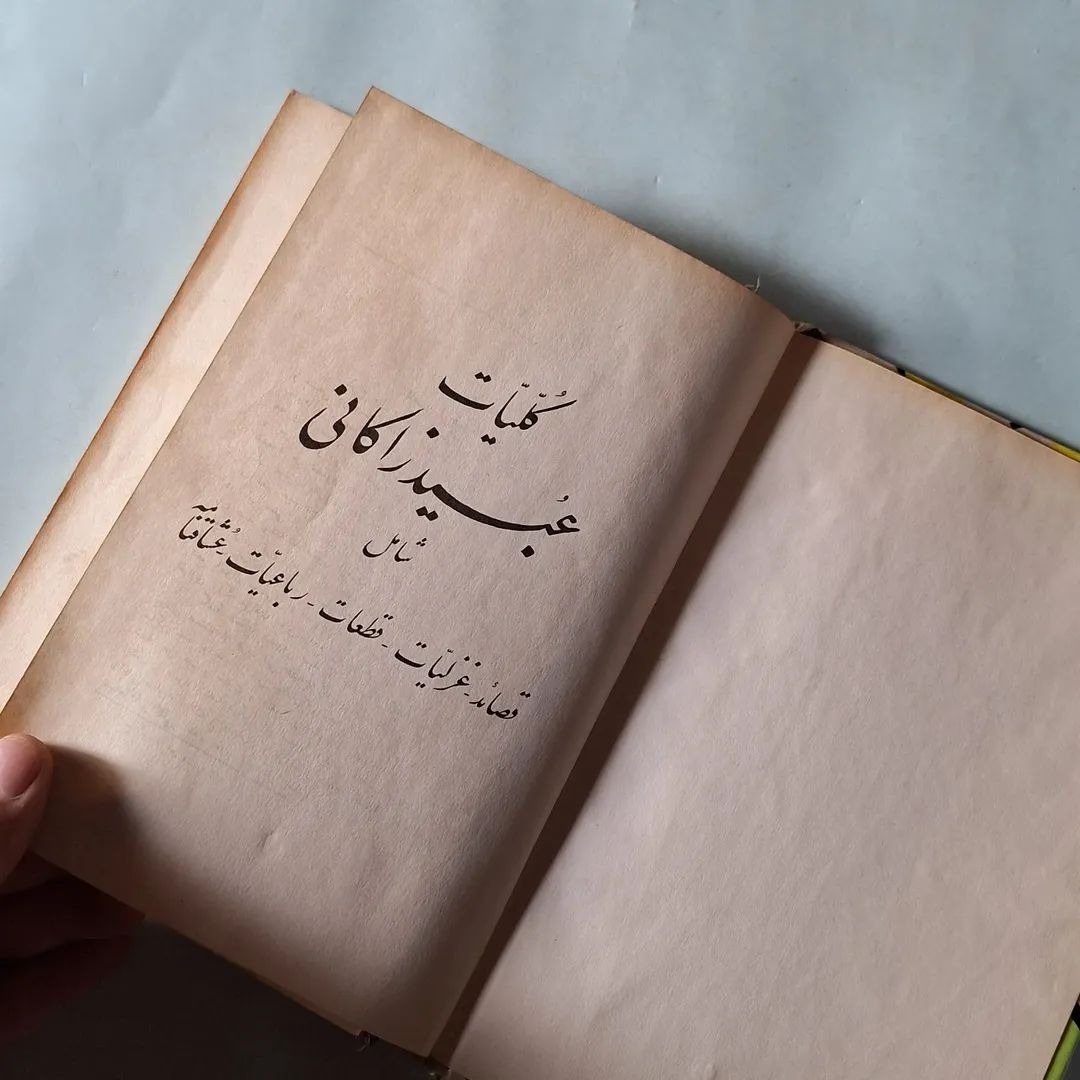 کُلّیّات
عُبید زاکانی
شامل
قصائد - غزلیّات - قطعات - رباعیّات - عُشّاقنامه